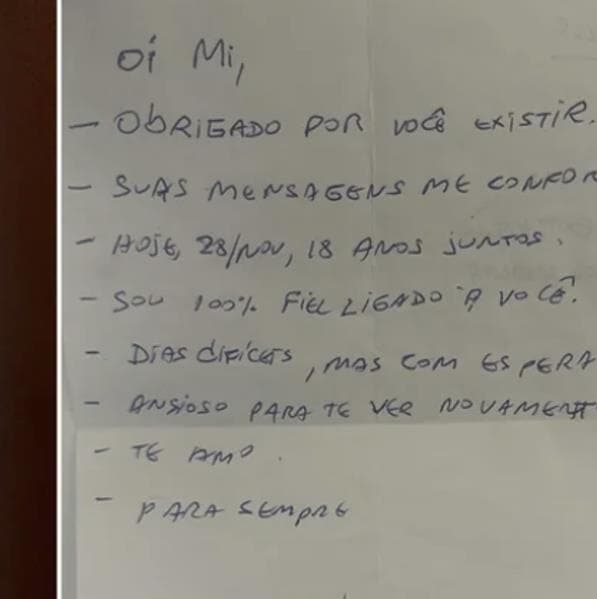 Oi Mi,
- OBRIGADO POR VOCÊ EXISTIR.
- SUAS MENSAGENS ME CONFOR
- HOJE, 28/NOV, 18 ANOS JUNTOS.
- SOU 100% FIEL LIGADO À VOCÊ.
- DIAS DIFÍCEIS, MAS COM ESPERA
- ANSIOSO PARA TE VER NOVAMENT
- TE AMO.
- PARA SEMPRE